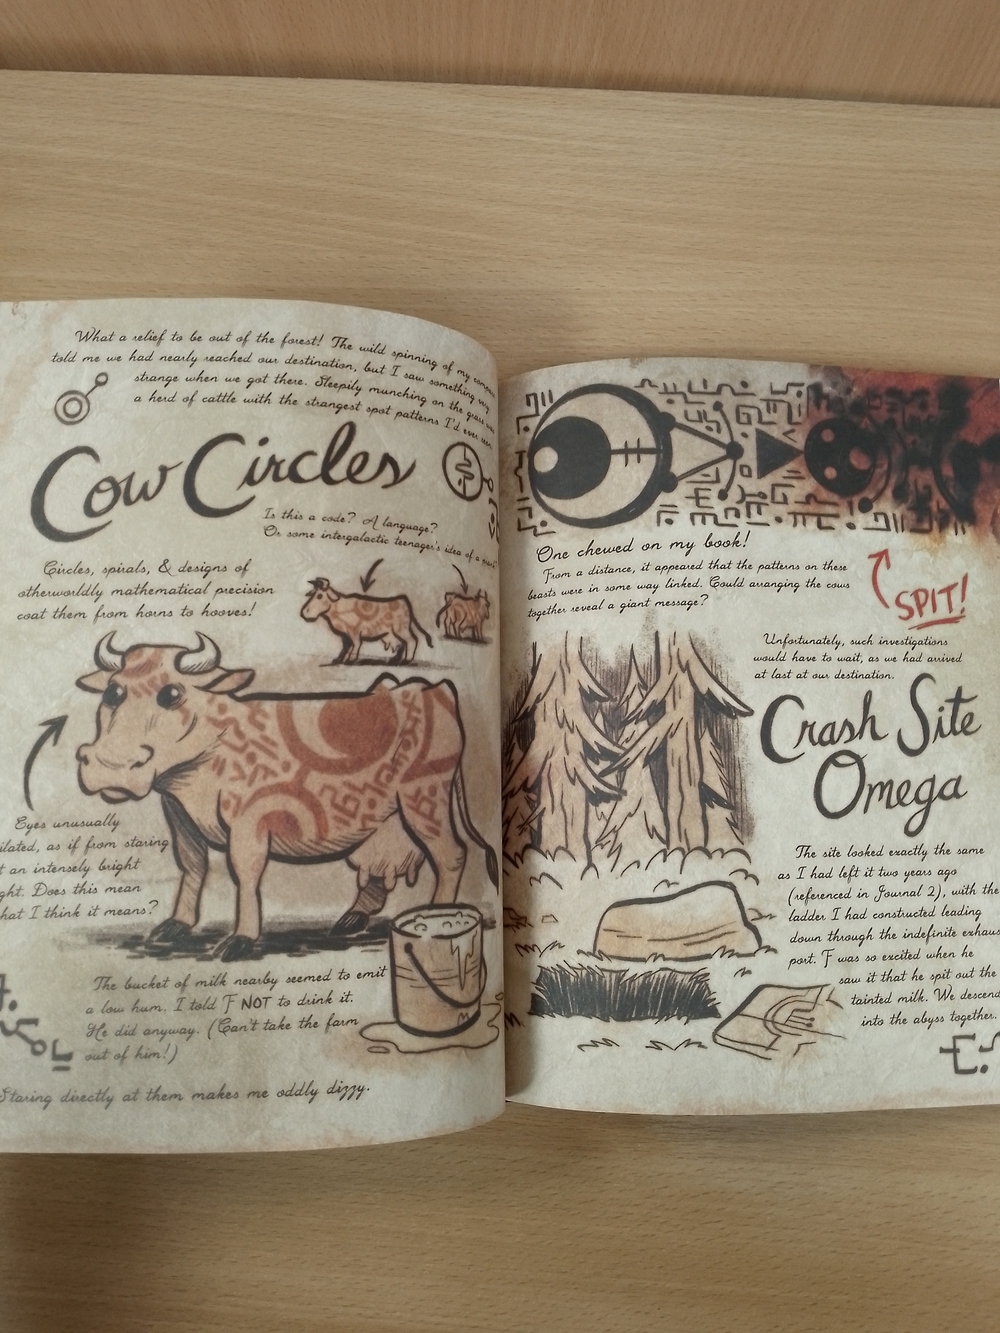 What a relief to be out of the forest! The wild spinning of my
told me we had nearly reached our destination, but I saw something very
strange when we got there. Sleepily munching on the grass was
a herd of cattle with the strangest spot patterns I'd ever seen
Cow Circles
Is this a code? A language?
Or some intergalactic teenager's idea of a
Circles, spirals, & designs of
otherworldly mathematical precision
coat them from horns to hooves!
Eyes unusually
ilated, as if from staring
t an intensely bright
ght. Does this mean
hat I think it means?
The bucket of milk nearby seemed to emit
a low hum. I told F NOT to drink it.
He did anyway. (Can't take the farm
out of him!)
Staring directly at them makes me oddly dizzy.
One chewed on my book!
From a distance, it appeared that the patterns on these
beasts were in some way linked. Could arranging the cows
together reveal a giant message?
SPIT!
Unfortunately, such investigations
would have to wait, as we had arrived
at last at our destination.
Crash Site
Omega
The site looked exactly the same
as I had left it two years ago
(referenced in Journal 2), with the
ladder I had constructed leading
down through the indefinite exhaus
port. F was so excited when he
saw it that he spit out the
tainted milk. We descend
into the abyss together.